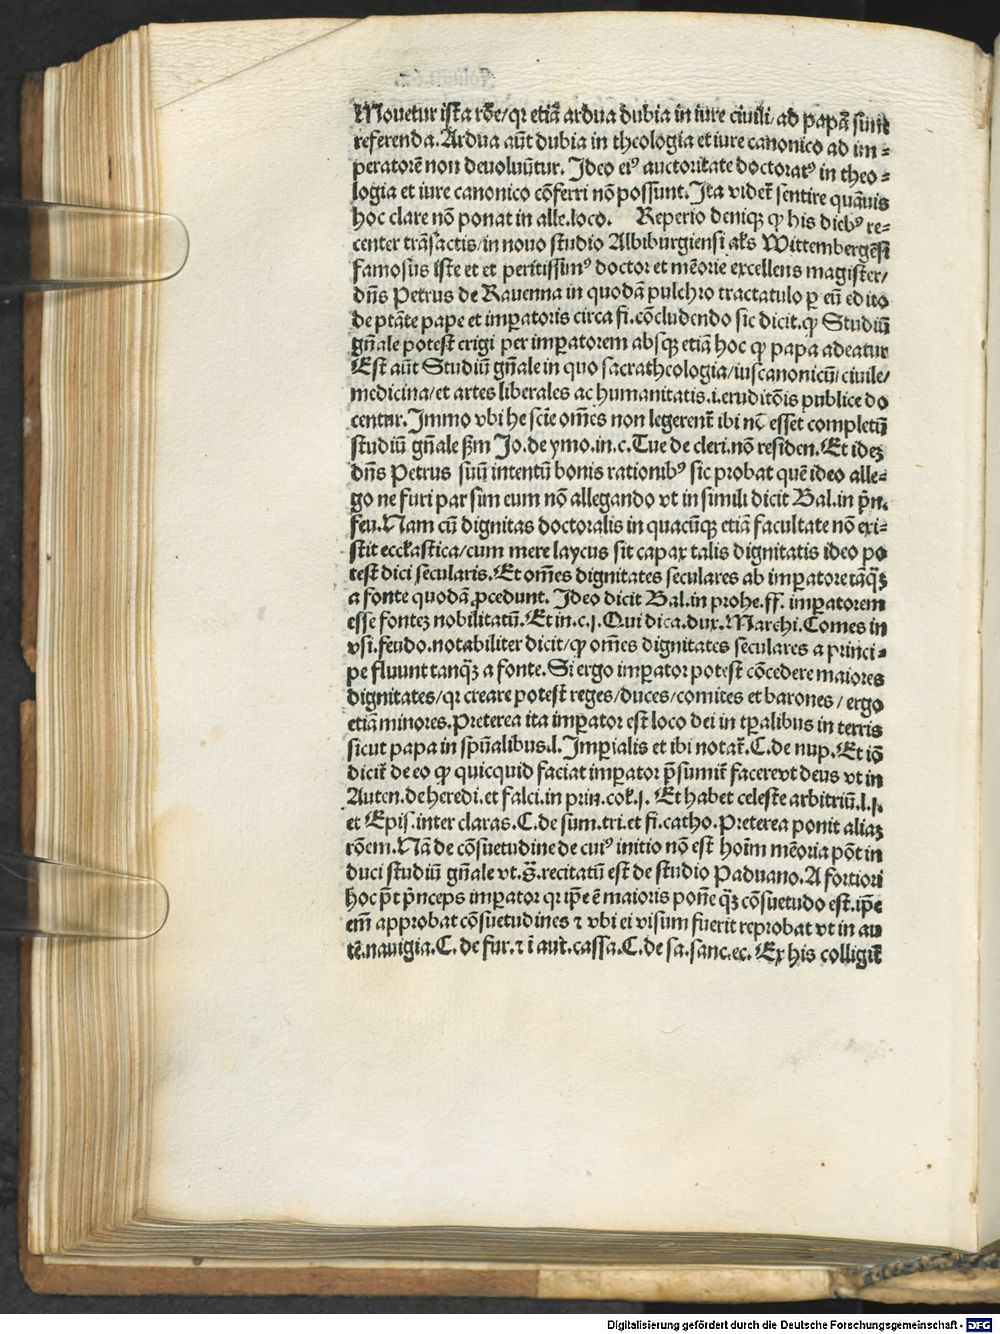 Mouetur ista rōe/qr etiā ardua dubia in iure ciuili/ad papā sunt
referenda. Ardua aūt dubia in theologia et iure canonico ad im⸗
peratorē non deuoluūtur. Ideo eiꝰ auctoritate doctoratꝰ in theo⸗
logia et iure canonico cōferri nō possunt. Ita videt̄ sentire quāuis
hoc clare nō ponat in alle.loco. Reperio deniqꝫ ꝙ his diebꝰ re⸗
center trāsactis/in nouo studio Albiburgiensi al̄s Wittembergēsi
famosus iste et et peritissimꝰ doctor et mēorie excellens magister/
dn̄s Petrus de Rauenna in quodā pulchro tractatulo ꝑ eū edito
de ptāte pape et imꝑatoris circa fi.cōcludendo sic dicit.ꝙ Studiū
gn̄ale potest erigi per imꝑatorem absqꝫ etiā hoc ꝙ papa adeatur
Est aūt Studiū gn̄ale in quo sacratheologia/iuscanonicū/ciuile/
medicina/et artes liberales ac humanitatis.i.eruditōis publice do
centur. Immo vbi he scīe om̄es non legerent̄ ibi nō esset completū
studiū gn̄ale ẜm Jo.de ymo.in.c.Tue de cleri.nō residen. Et ideꝫ
dn̄s Petrus suū intentū bonis rationibꝰ sic probat quē ideo alle⸗
go ne furi par sim eum nō allegando vt in simili dicit Bal.in p̄n.
feu. Nam cū dignitas doctoralis in quacūqꝫ etiā facultate nō exi⸗
stit eccl̄astica/cum mere laycus sit capax talis dignitatis ideo po
test dici secularis. Et om̄es dignitates seculares ab imꝑatore tāqꝫ̄
a fonte quodā ꝓcedunt. Ideo dicit Bal.in prohe.ff. imꝑatorem
esse fonteꝫ nobilitatū. Et in.c.j.Qui dica.dux.Marchi.Comes in
vsi.feudo.notabiliter dicit/ꝙ om̄es dignitates seculares a princi⸗
pe fluunt tanqꝫ̄ a fonte. Si ergo imꝑator potest cōcedere maiores
dignitates/qr creare potest reges/duces/comites et barones/ergo
etiā minores. Preterea ita imꝑator est loco dei in tꝑalibus in terris
sicut papa in spūalibus.l.Imꝑialis et ibi notat̄.C.de nup. Et iō
dicit̄ de eo ꝙ quicquid faciat imꝑator p̄sumit̄ facerevt deus vt in
Auten.de heredi.et falci.in prin.col̄.j. Et habet celeste arbitriū.l.j.
et Epis.inter claras.C.de sum.tri.et fi.catho. Preterea ponit aliaꝫ
rōem. Nā de cōsuetudine de cuiꝰ initio nō est hoīm mēoria pōt in
duci studiū gn̄ale vt.s̄.recitatū est de studio Paduano. A fortiori
hoc p̄t p̄nceps imꝑator qr ip̄e ē maioris pon̄e qꝫ̄ cōsuetudo est.ip̄e
em̄ approbat cōsuetudines ⁊ vbi ei visum fuerit reprobat vt in au
tē.nauigia.C.de fur.⁊ ī aut̄.cassa.C.de sa.sanc.ec. Ex his colligit̄
Digitalisierung gefördert durch die Deutsche Forschungsgemeinschaft - DFG